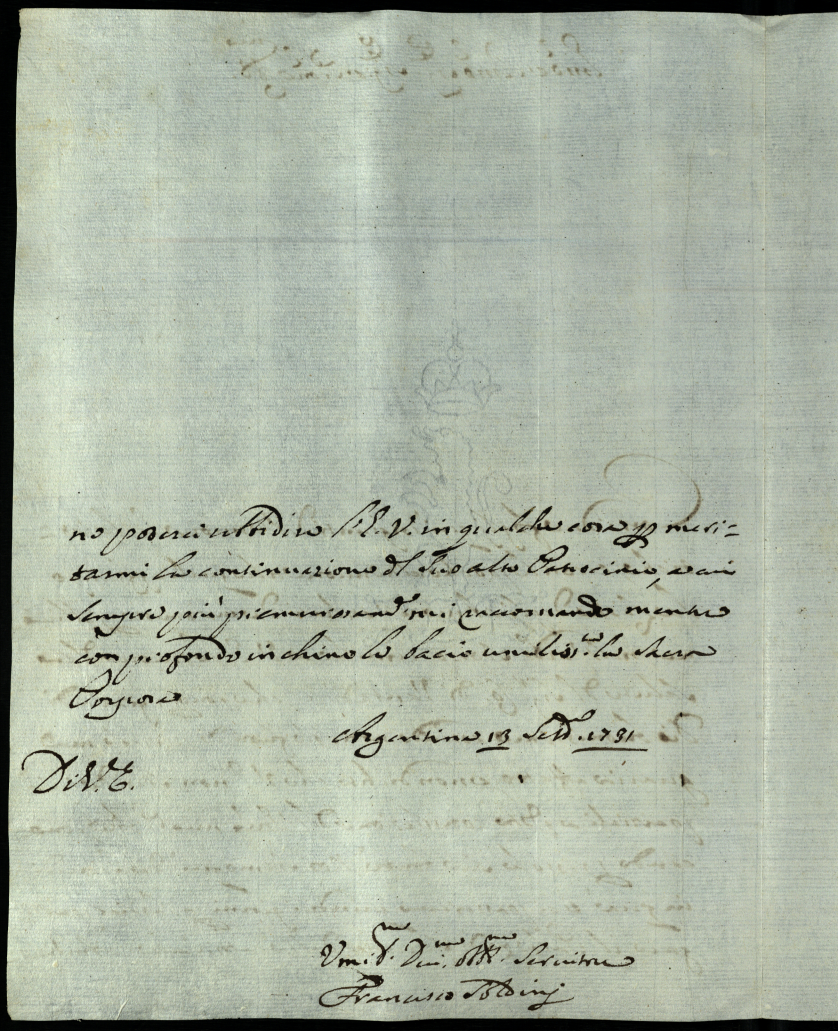 no poterci ubbidire l'E. V. in qualche cosa p meri=
tarmi la continuazione dl Suo alto Patrocinio, a cui
sempre più premurosam.e mi racomando mentre
con profondo inchino le bacio umiliss.e la Sacra
Porpora
Argentina 13 Sett. 1731
Di V. E.
Umil.mo Div.mo Obb.mo Servitore
Francisco